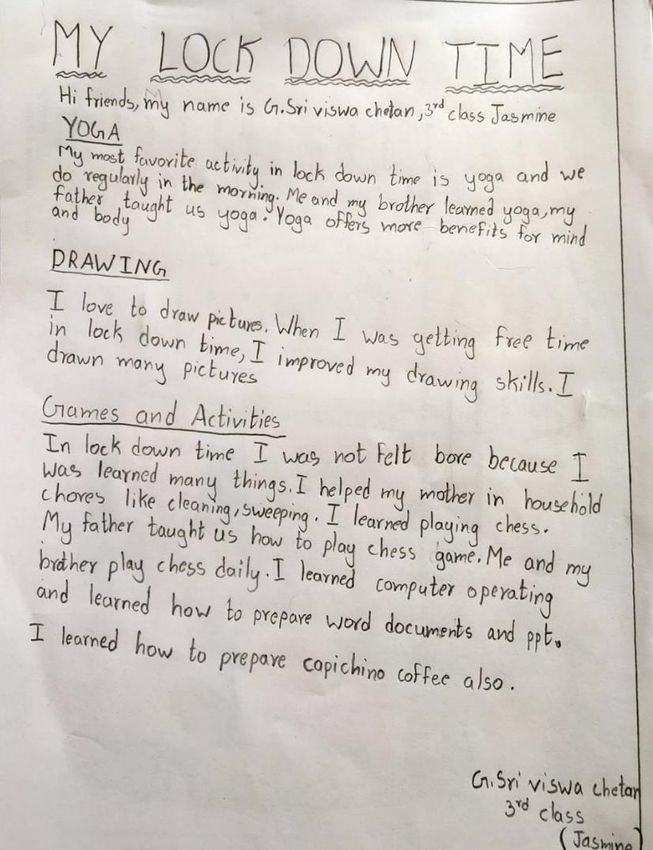 MY LOCK DOWN TIME
Hi friends, my name is G.Sri viswa chetan, 3rd class Jasmine
YOGA
My most favorite activity in lock down time is yoga and we
do regularly in the morning. Me and my brother learned yoga, my
father taught us yoga. Yoga offers more benefits for mind
and body
DRAWING
I love to draw pictures. When I was getting free time
in lock down time, I improved my drawing skills. I
drawn many pictures
Games and Activities
In lock down time I was not felt bore because I
was learned many things. I helped my mother in household
chores like cleaning, sweeping. I learned playing chess.
My father taught us how to play chess game. Me and my
brother play chess daily. I learned computer operating
and learned how to prepare word documents and ppt.
I learned how to prepare capichino coffee also.
G.Sri viswa chetan
3rd class
(Jasmine)